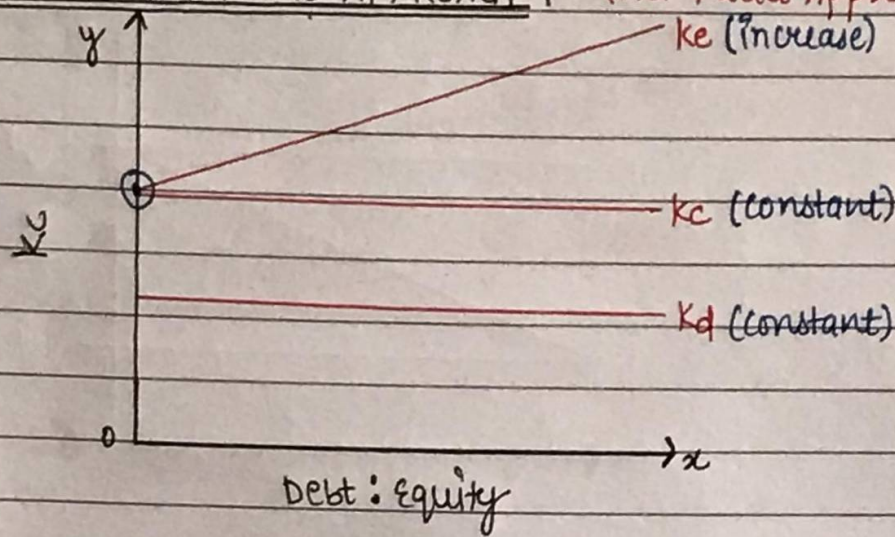 y
ke (increase)
Kc
kc (constant)
Kd (constant)
0
x
Debt : Equity